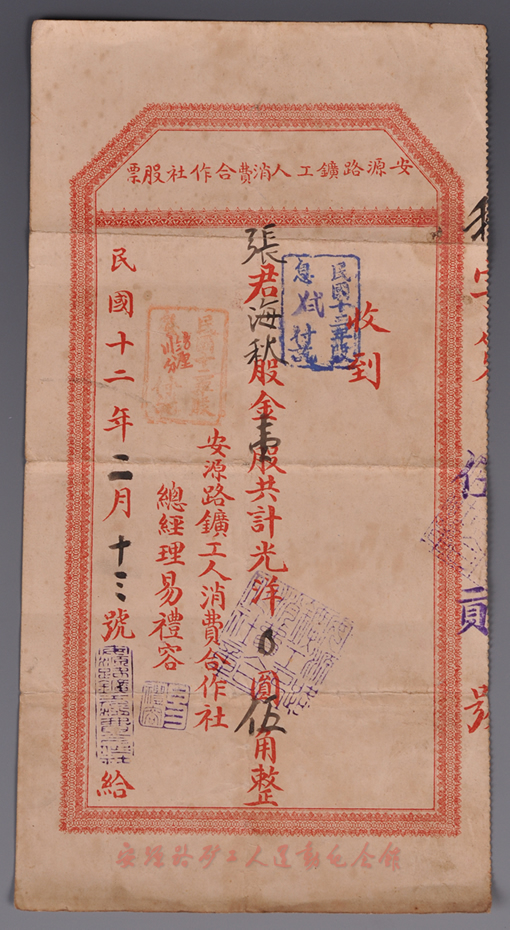 安源路鑛工人消費合作社股票
號
收到
張君海秋股金壹股共計光洋0圓伍角整
民國十二年股
息付訖
安源路鑛工人消費合作社
總經理易禮容
民國十二年二月十三號
給
安源路矿工人运动纪念馆